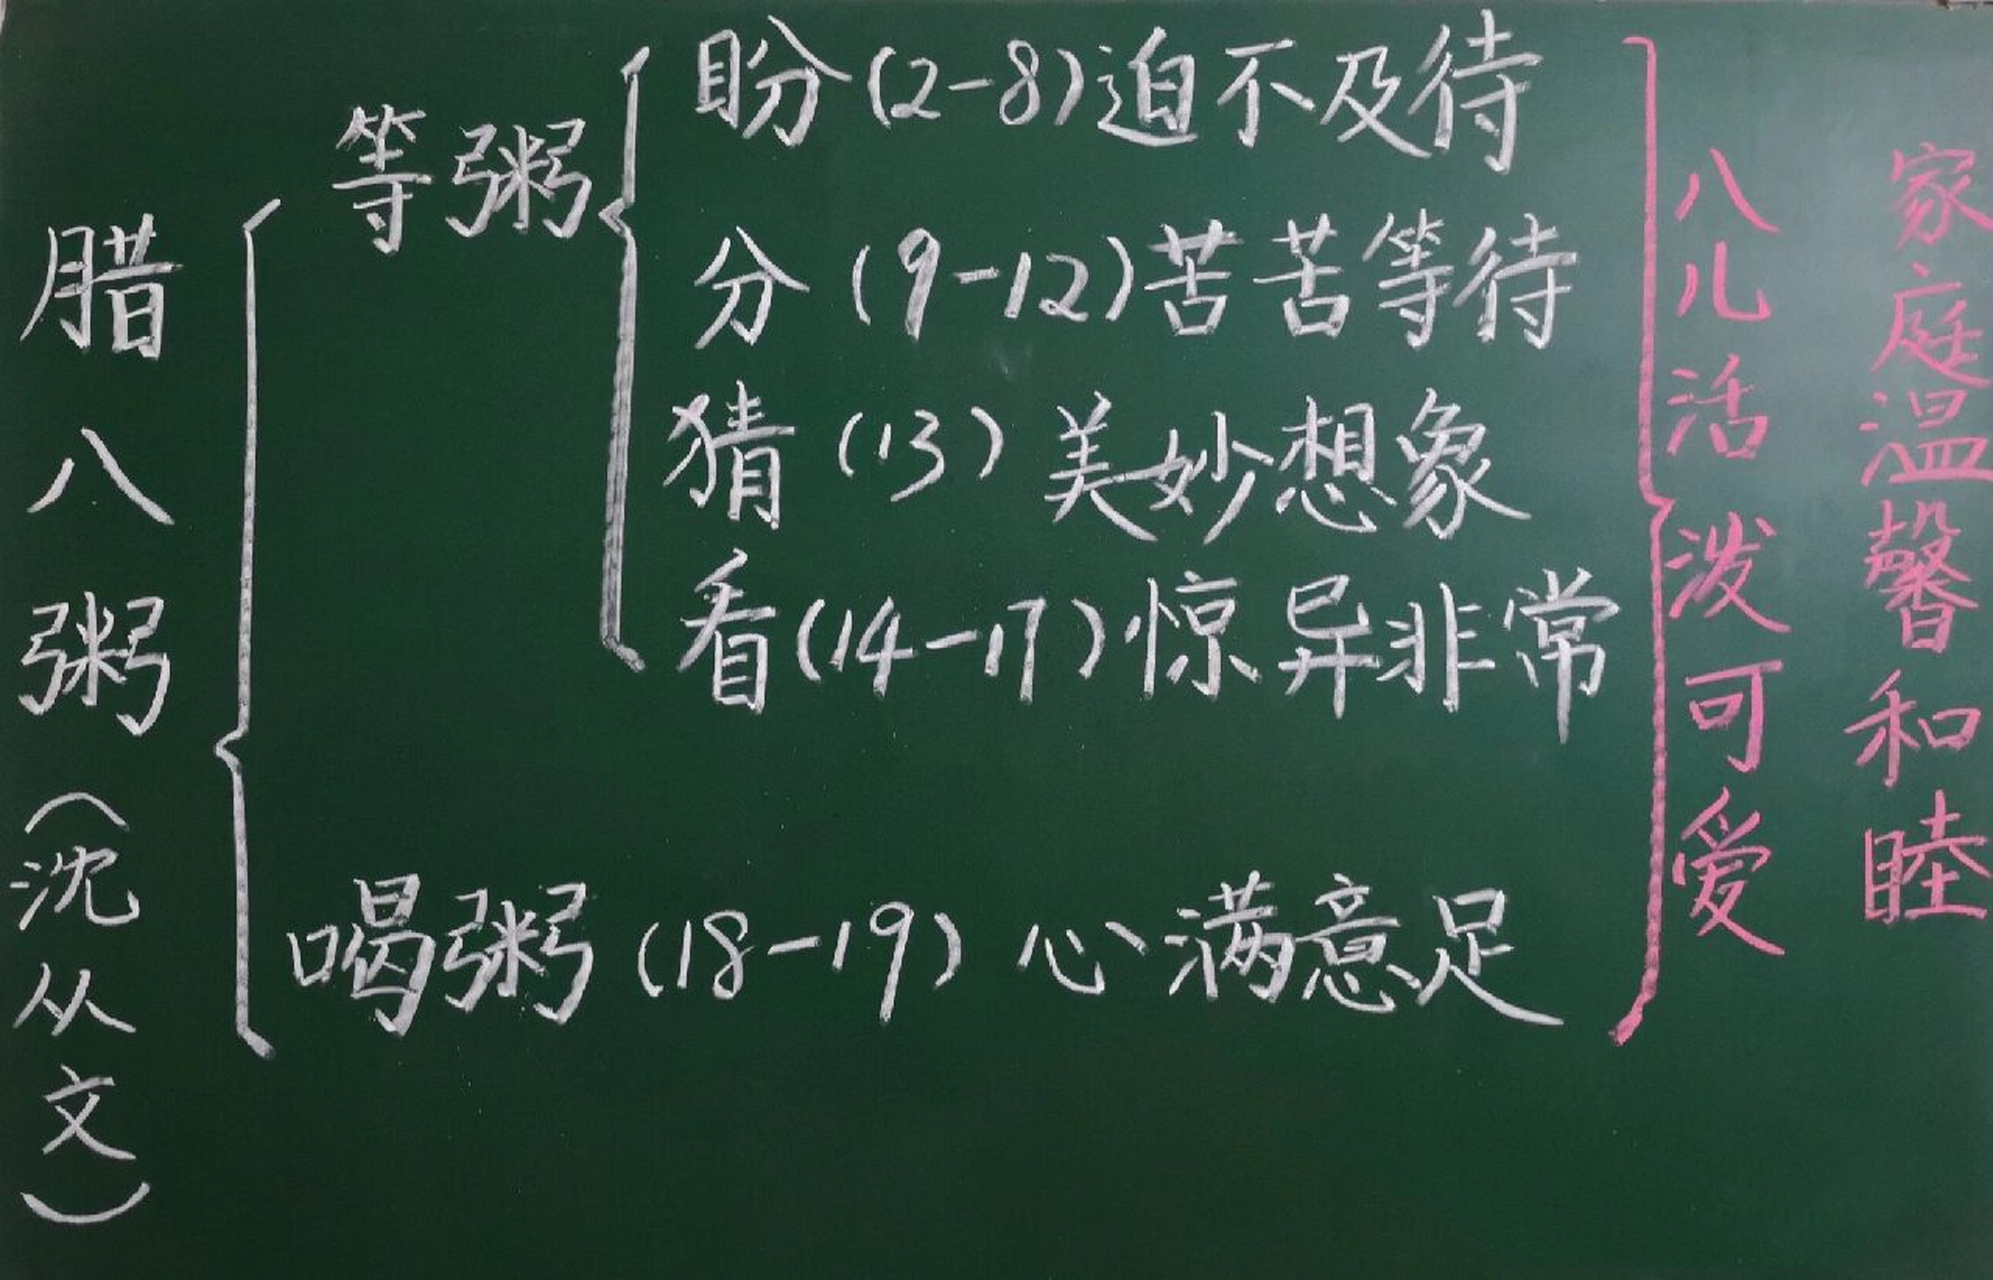 腊八粥（沈从文）
等粥
盼(2-8)迫不及待
分(9-12)苦苦等待
猜(13)美妙想象
看(14-17)惊异非常
喝粥(18-19)心满意足
八儿活泼可爱
家庭温馨和睦